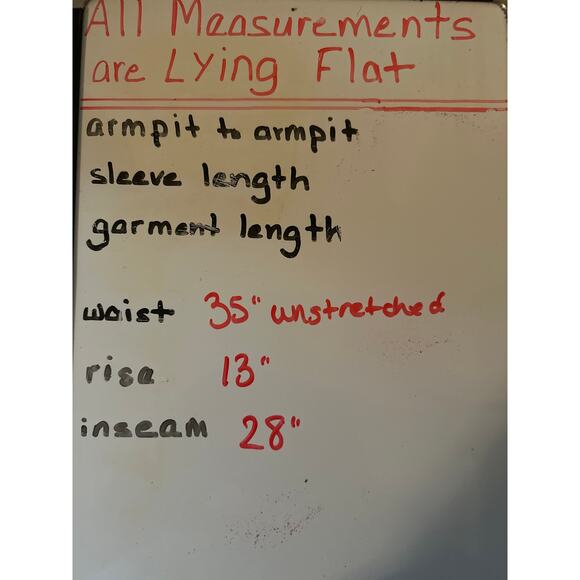 All Measurements
are Lying Flat
armpit to armpit
sleeve length
garment length
waist 35" unstretched
rise 13"
inseam 28"